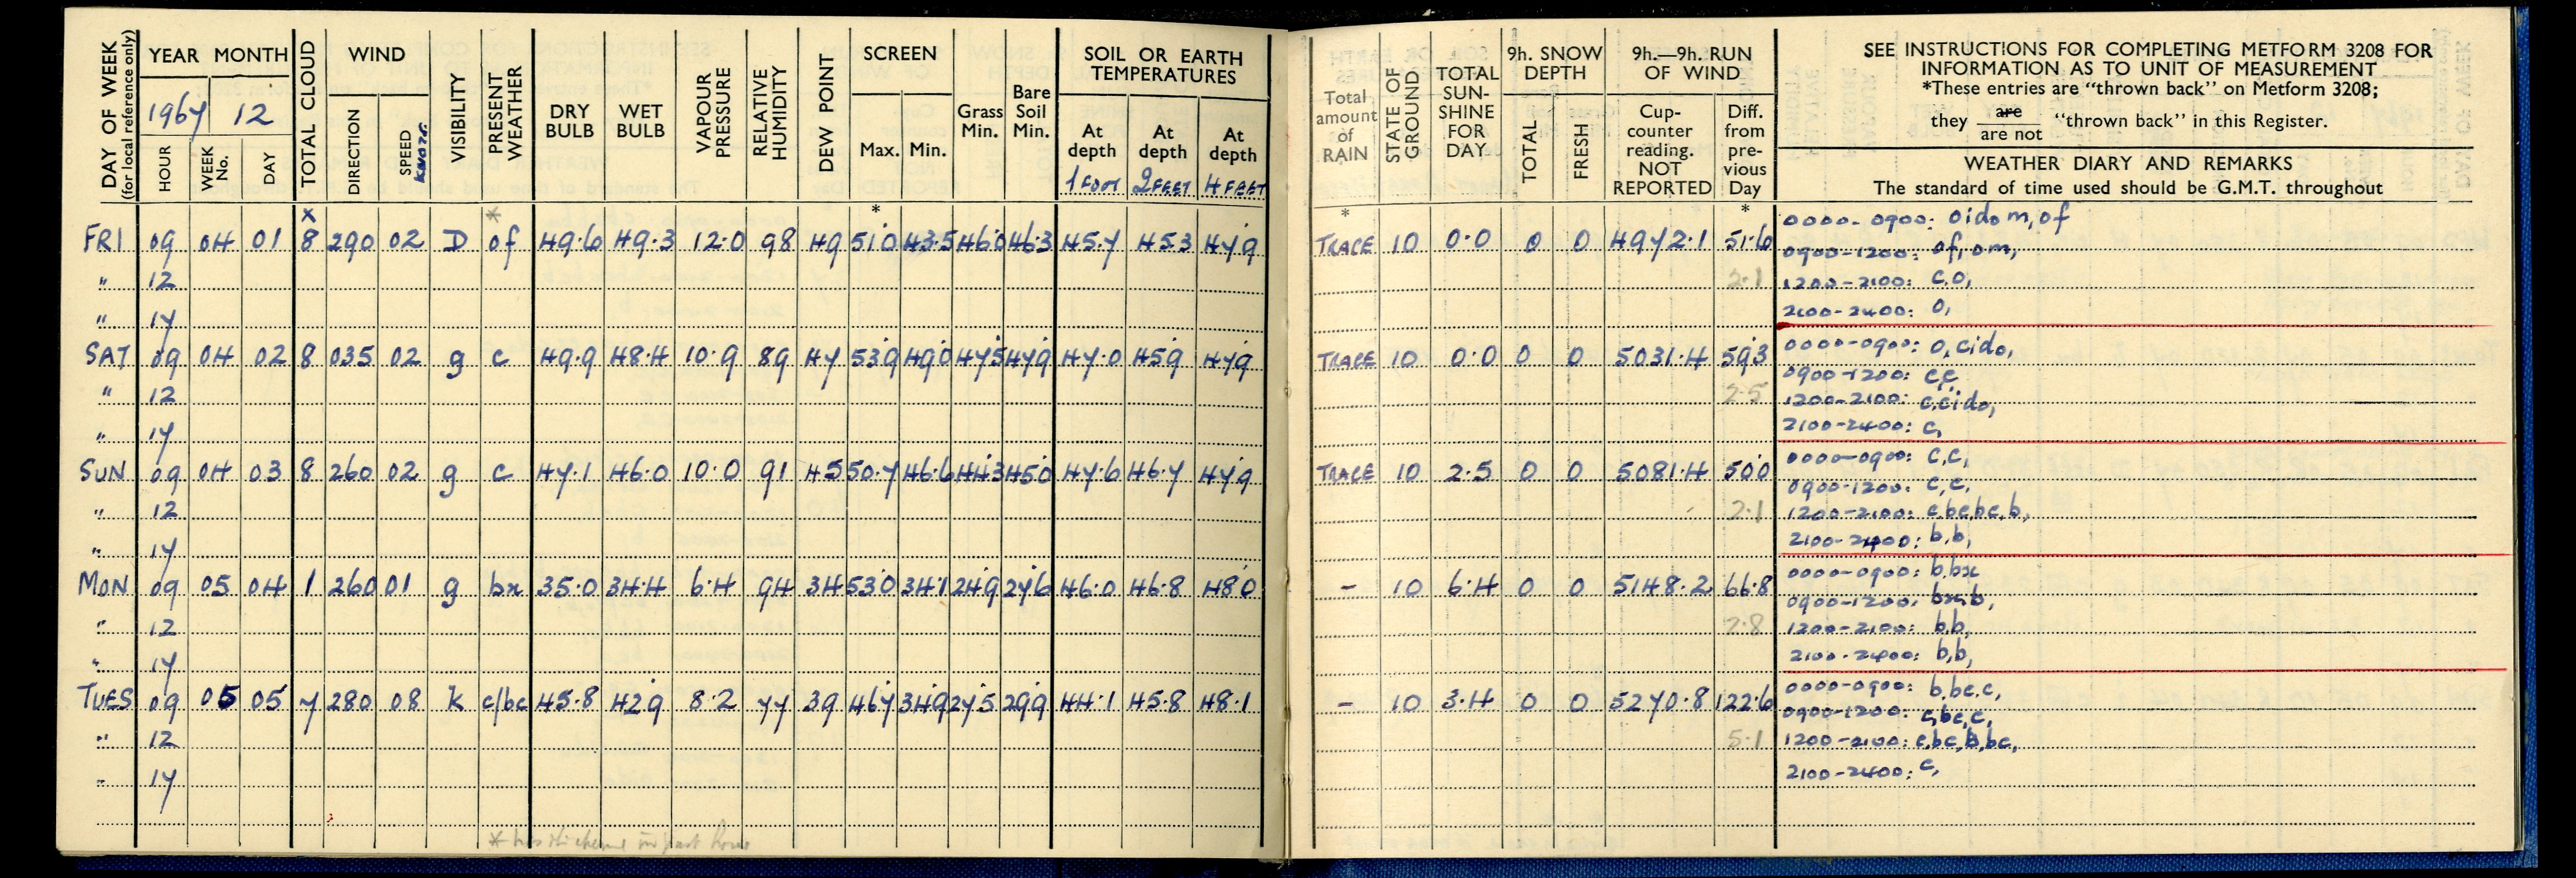 DAY OF WEEK (for local reference only)
YEAR MONTH
1967 12
HOUR WEEK No. DAY
TOTAL CLOUD
WIND
DIRECTION SPEED KNOTS
VISIBILITY
PRESENT WEATHER
DRY BULB
WET BULB
VAPOUR PRESSURE
RELATIVE HUMIDITY
DEW POINT
SCREEN
Max. Min.
Grass Min.
Bare Soil Min.
SOIL OR EARTH TEMPERATURES
At depth 1 FOOT
At depth 2 FEET
At depth 4 FEET
Total amount of RAIN
STATE OF GROUND
TOTAL SUN-SHINE FOR DAY
9h. SNOW DEPTH
TOTAL FRESH
9h.—9h. RUN OF WIND
Cup-counter reading. NOT REPORTED
Diff. from pre-vious Day
SEE INSTRUCTIONS FOR COMPLETING METFORM 3208 FOR
INFORMATION AS TO UNIT OF MEASUREMENT
*These entries are "thrown back" on Metform 3208;
they are / are not "thrown back" in this Register.
WEATHER DIARY AND REMARKS
The standard of time used should be G.M.T. throughout
x * * * *
FRI 09 04 01 8 290 02 D of 49.6 49.3 12.0 98 49 51.0 43.5 46.0 46.3 45.7 45.3 47.9 TRACE 10 0.0 0 0 4972.1 51.6 0000-0900: oidom,of
0900-1200: of,om,
" 12 2.1 1200-2100: c,o,
" 17 2100-2400: o,
SAT 09 04 02 8 035 02 g c 49.9 48.4 10.9 89 47 53.9 49.0 47.5 47.9 47.0 45.9 47.9 TRACE 10 0.0 0 0 5031.4 59.3 0000-0900: o,cido,
0900-1200: c,c,
" 12 2.5 1200-2100: c,cido,
" 17 2100-2400: c,
SUN 09 04 03 8 260 02 g c 47.1 46.0 10.0 91 45 50.7 46.6 44.3 45.0 47.6 46.7 47.9 TRACE 10 2.5 0 0 5081.4 50.0 0000-0900: c,c,
0900-1200: c,c,
" 12 2.1 1200-2100: c,bc,bc,b,
" 17 2100-2400: b,b,
MON 09 05 04 1 260 01 g bx 35.0 34.4 6.4 94 34 53.0 34.1 24.9 27.6 46.0 46.8 48.0 - 10 6.4 0 0 5148.2 66.8 0000-0900: b,bx
0900-1200: bx,b,
" 12 2.8 1200-2100: b,b,
" 17 2100-2400: b,b,
TUES 09 05 05 7 280 08 k c/bc 45.8 42.9 8.2 77 39 46.7 34.9 27.5 29.9 44.1 45.8 48.1 - 10 3.4 0 0 5270.8 122.6 0000-0900: b,bc,c,
0900-1200: c,bc,c,
" 12 5.1 1200-2100: c,bc,b,bc,
" 17 2100-2400: c,
* in past hour